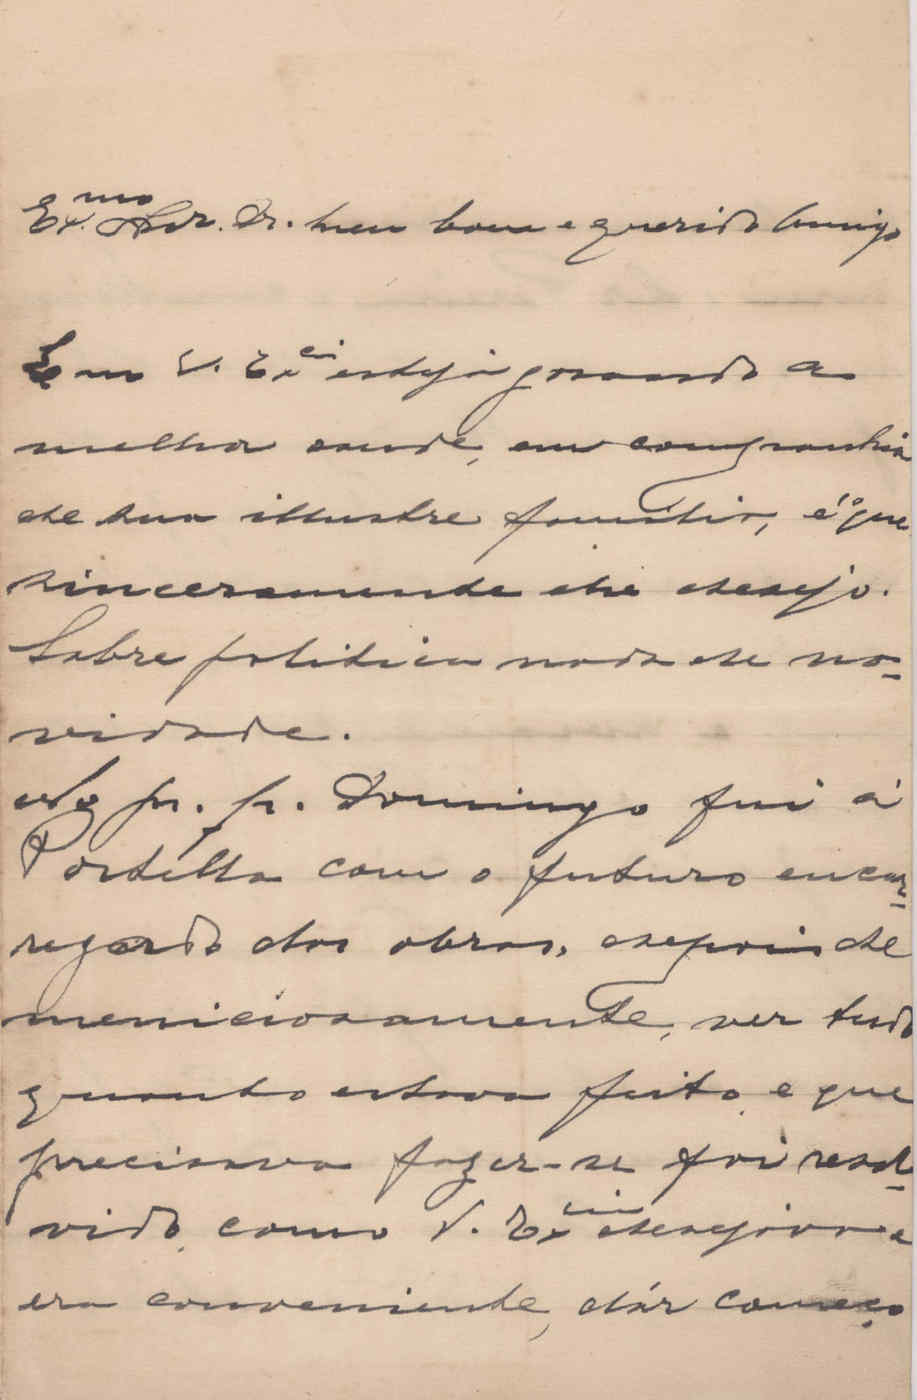 Ex.mo Snr. Dr. meu bom e querido Amigo
V. Ex.cia esteja gosando a
melhor saude, em companhia
de sua illustre familia, é o que
sinceramente lhe desejo.
Sobre politica nada de no-
vidade.
No p. p. Domingo fui á
Portella com o futuro encar-
regado das obras, depois de
meniciosamente, ver tudo
quanto estava feito e que
precisava fazer-se foi resol-
vido, como V. Ex.cia desejava e
era conveniente, dár começo